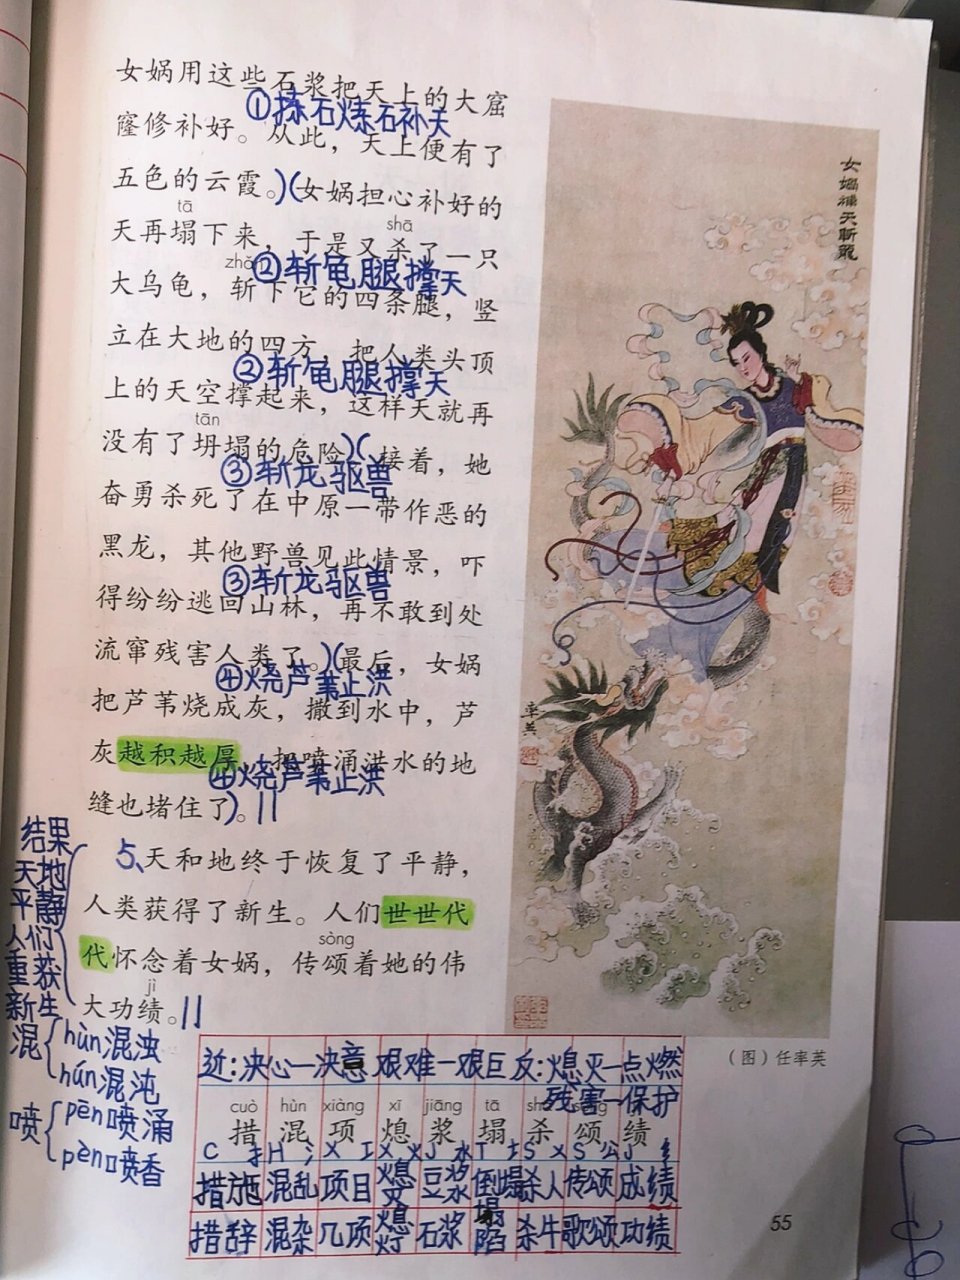 女娲用这些石浆把天上的大窟
①拣石炼石补天
窿修补好。从此，天上便有了
五色的云霞。)(女娲担心补好的
tā
shā
天再塌下来，于是又杀了一只
zhǎn
②斩龟腿撑天
大乌龟，斩下它的四条腿，竖
立在大地的四方，把人类头顶
②斩龟腿撑天
上的天空撑起来，这样天就再
tān
没有了坍塌的危险)(接着，她
③斩龙驱兽
奋勇杀死了在中原一带作恶的
黑龙，其他野兽见此情景，吓
③斩龙驱兽
得纷纷逃回山林，再不敢到处
流窜残害人类了。)(最后，女娲
④烧芦苇止洪
把芦苇烧成灰，撒到水中，芦
灰越积越厚，把喷涌洪水的地
④烧芦苇止洪
缝也堵住了)。||
5、天和地终于恢复了平静，
人类获得了新生。人们世世代
sòng
代怀念着女娲，传颂着她的伟
jì
大功绩。||
结果
天地
平静
人们
重获
新生
混{hùn混浊
hún混沌
喷{pēn喷涌
pèn喷香
女娲补天斩龙
率英
（图）任率英
近:决心一决意 艰难一艰巨 反:熄灭一点燃
残害一保护
cuò hùn xiàng xī jiāng tā shā sòng jì
措 混 项 熄 浆 塌 杀 颂 绩
C 扌 H 氵 X 工 X 火 J 水 T 扌 S X S 公 J 纟
措施 混乱 项目 熄灭 豆浆 倒塌 杀人 传颂 成绩
措辞 混杂 几项 熄灯 石浆 塌陷 杀牛 歌颂 功绩
55